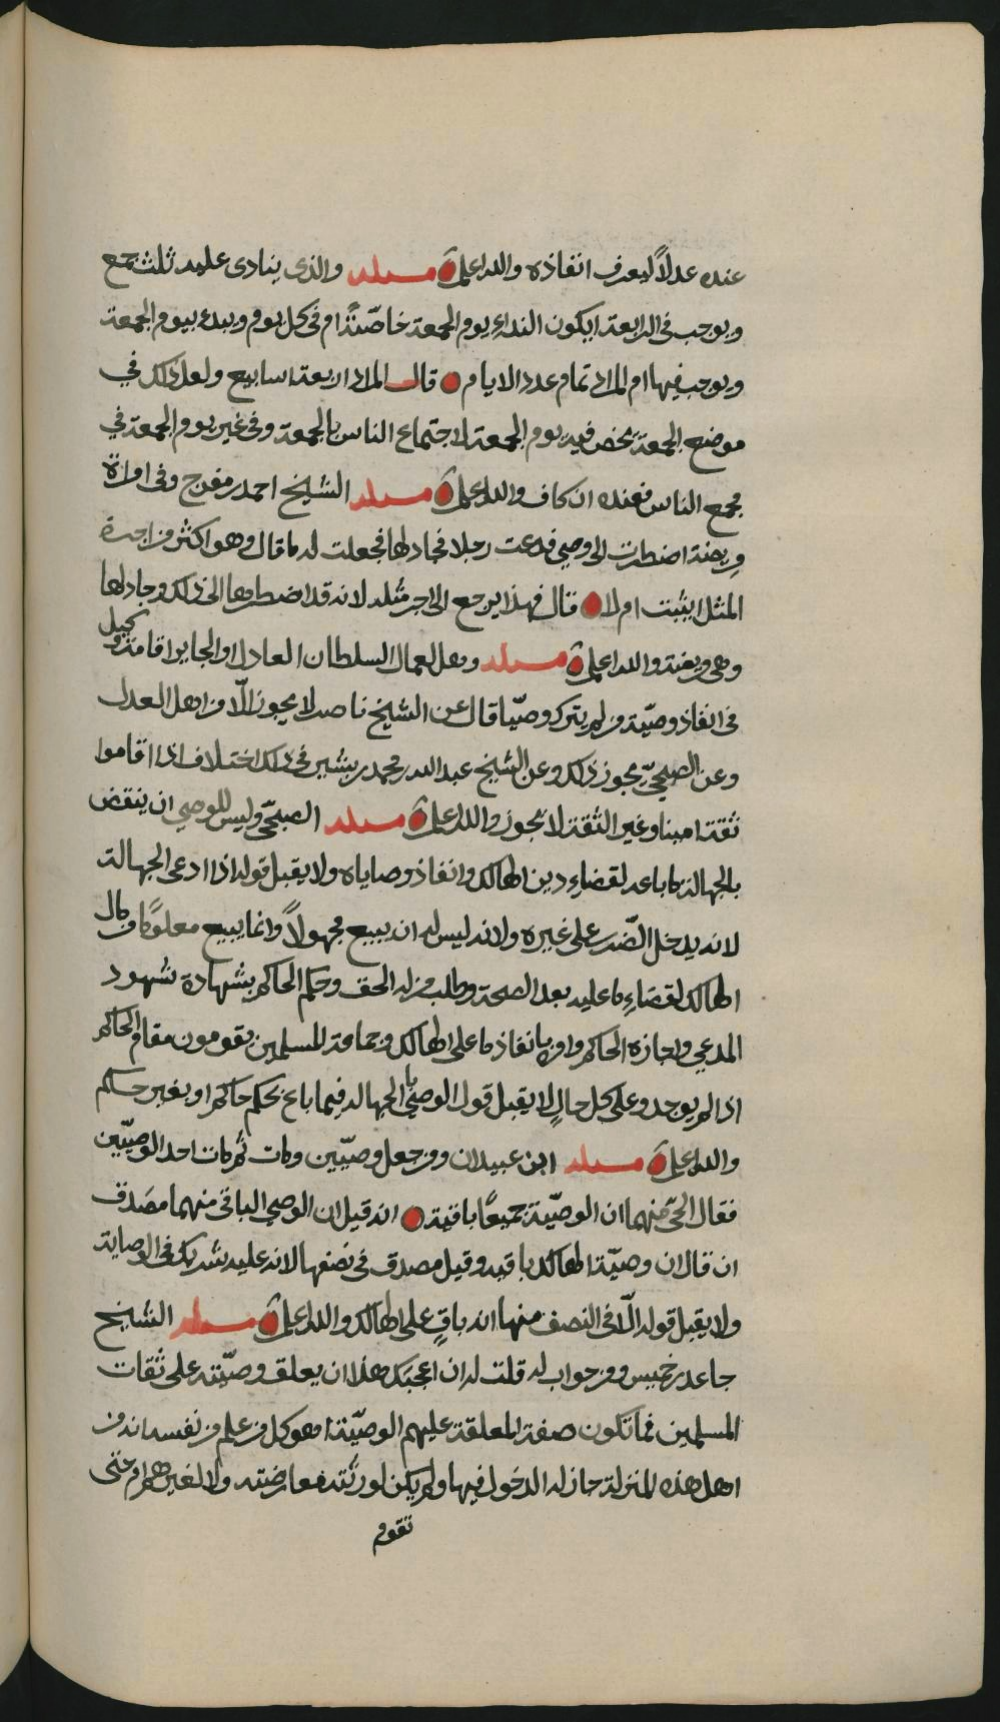 عنده عدلاً ليعرف انفاذه والله اعلم مسئلة والذي ينادى عليه ثلث جمع
ويوجب في الرابعة ايكون النداء يوم الجمعة خاصّة ام في كل يوم ويبدء بيوم الجمعة
ويوجب فيها ام المراد تمام عدد الايام قال المراد اربعة اسابيع ولعل ذلك في
موضع الجمعة يخص فيه يوم الجمعة لاجتماع الناس بالجمعة وفي غير يوم الجمعة في
مجمع الناس فعنده ان كاف والله اعلم مسئلة الشيخ احمد بن مفرج وفي امراة
مريضة اضطرت الى وصي فدعت رجلا فجادلها فجعلت له ما قال وهو اكثر من اجرة
المثل ايثبت ام لا قال فهذا يرجع الى اجر مثله لانه قد اضطرها الى ذلك وجادلها
وهي مريضة والله اعلم مسئلة وهل لعمال السلطان العادل او الجاير اقامة وكيل
في انفاذ وصيّة من لم يترك وصيّا قال عن الشيخ ناصر لا يجوز الّا من اهل العدل
وعن الصبحيّ يجوز ذلك وعن الشيخ عبدالله بن محمد بن بشير في ذلك اختلاف اذا اقاموا
ثقة امينا وغير الثقة لا يجوز والله اعلم مسئلة الصبحيّ وليس للوصي ان ينقض
بالجهالة ما باعه لقضاء دين الهالك وانفاذ وصاياه ولا يقبل قوله اذا ادعى الجهالة
لانه يدخل الضّرر على غيره ولانه ليس له ان يبيع مجهولاً وانما يبيع معلومًا من مال
الهالك لقضاء ما عليه بعد الصحة وطلب من له الحق وحكم الحاكم بشهادة شهود
المدعي واجازه الحاكم وامره بانفاذ ما على الهالك وجماعة المسلمين يقومون مقام الحاكم
اذا لم يوجد وعلى كل حالٍ لا يقبل قول الوصي بالجهالة فيما باع بحكم حاكم او بغير حاكم
والله اعلم مسئلة ابن عبيدان ومن جعل وصيّين ومات ثم مات احد الوصيّين
فقال الحيّ منهما ان الوصيّة جميعًا باقية انه قيل ان الوصي الباقي منهما مصَدق
ان قال ان وصيّة الهالك باقيه وقيل مصدق في نصفها لانه عليه شريك في الوصاية
ولا يقبل قوله الّا في النصف منها انه باقٍ على الهالك والله اعلم مسئلة الشيخ
جاعد بن خميس ومن جواب له قلت له ان اعجبك هذا ان يعلق وصيّته على ثقات
المسلمين فما تكون صفة المعلقة عليهم الوصيّة اهو كل من علم من نفسه انه من
اهل هذه المنزلة جاز له الدخول فيها ولم يكن لورثته معارضته ولا لغيرهم ام حتى
تقوم